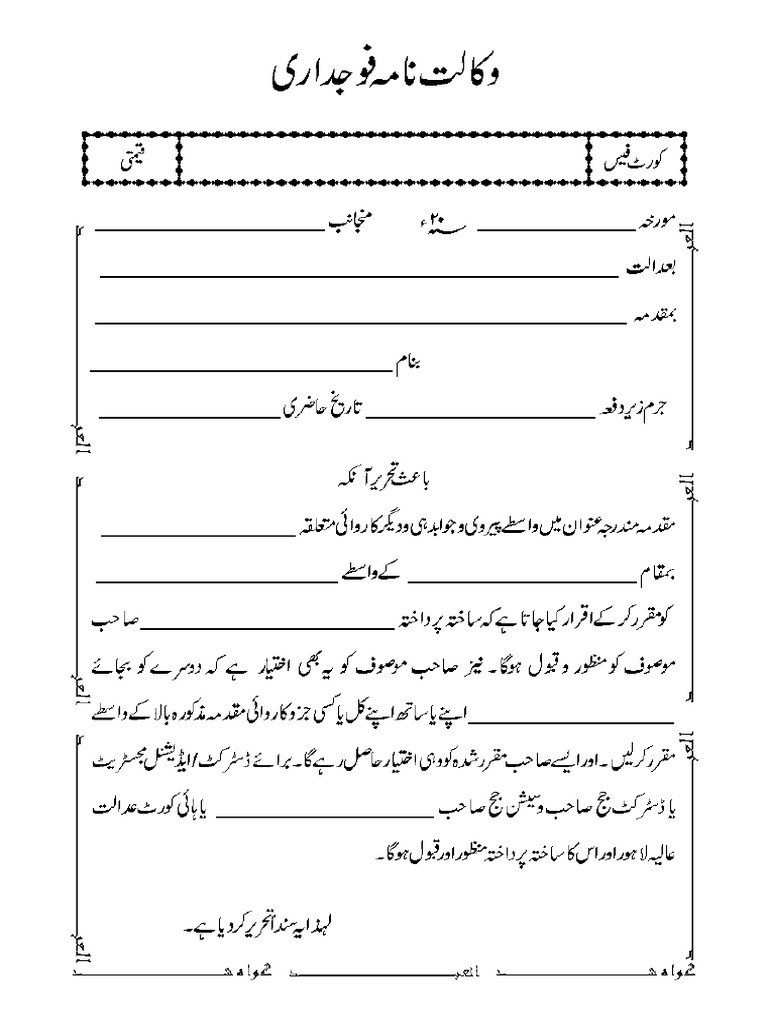 وکالت نامہ فوجداری
کورٹ فیس قیمتی
مورخہ ____________ ۲۰ء منجانب ____________
بعدالت ____________
بمقدمہ ____________
بنام ____________
جرم زیر دفعہ ____________ تاریخ حاضری ____________
باعث تحریر آنکہ
مقدمہ مندرجہ عنوان میں واسطے پیروی و جوابدہی و دیگر کاروائی متعلقہ ____________
بمقام ____________ کے واسطے ____________
کو مقرر کر کے اقرار کیا جاتا ہے کہ ساختہ پرداختہ ____________ صاحب
موصوف کو منظور و قبول ہوگا۔ نیز صاحب موصوف کو یہ بھی اختیار ہے کہ دوسرے کو بجائے
____________ اپنے یا ساتھ اپنے کل یا کسی جزو کاروائی مقدمہ مذکورہ بالا کے واسطے
مقرر کر لیں۔ اور ایسے صاحب مقرر شدہ کو وہی اختیار حاصل رہے گا۔ برائے ڈسٹرکٹ/ایڈیشنل مجسٹریٹ
یا ڈسٹرکٹ جج صاحب و سیشن جج صاحب ____________ یا ہائی کورٹ عدالت
عالیہ لاہور اور اس کا ساختہ پرداختہ منظور اور قبول ہوگا۔
لہذا یہ سنداً تحریر کر دیا ہے۔
گواہ شد ____________ العبد ____________ گواہ شد ____________